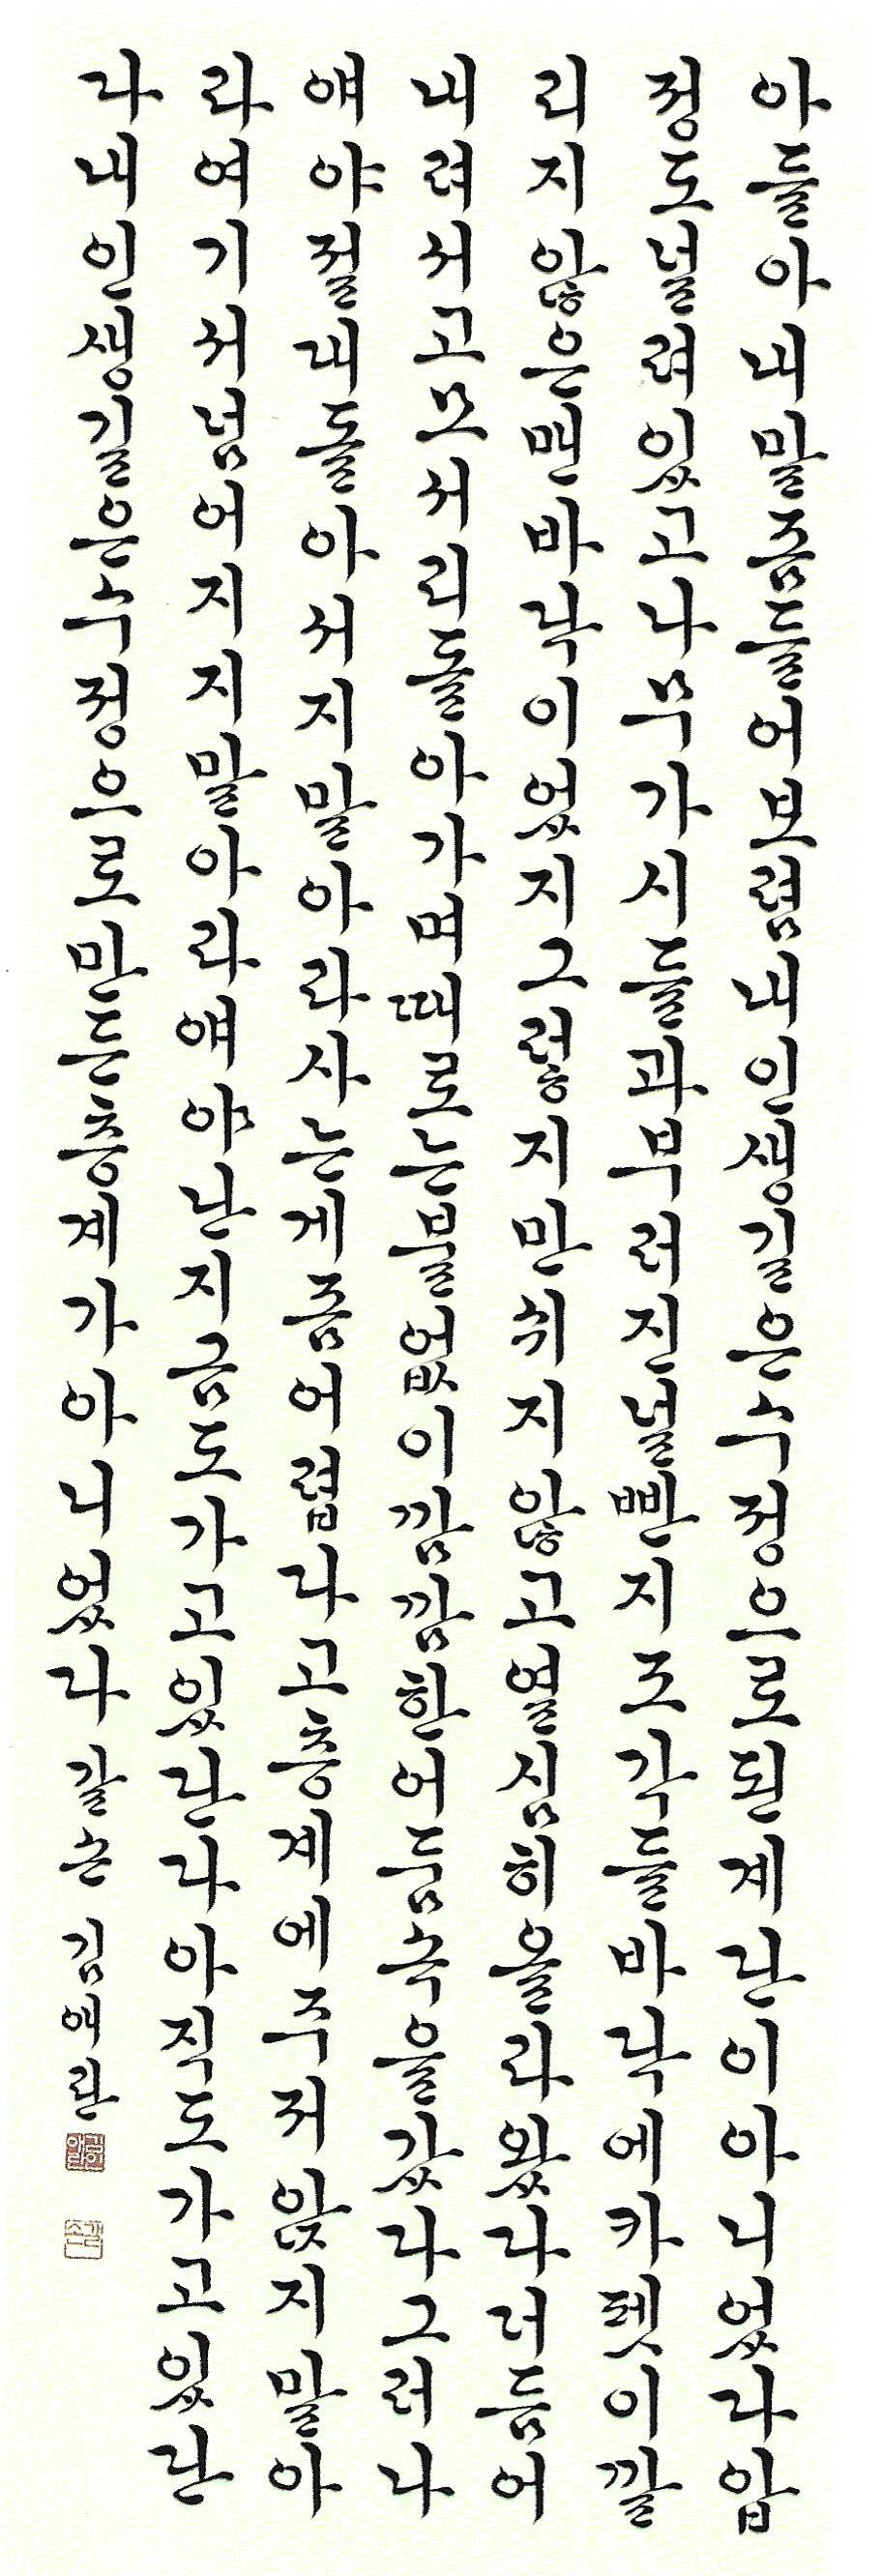 아들아내말좀들어보렴내인생길은수정으로된계단이아니었다압
정도널려있고나무가시들과부러진널빤지조각들바닥에카펫이깔
리지않은맨바닥이었지그렇지만쉬지않고열심히올라왔다더듬어
내려서고모서리돌아가며때로는불없이깜깜한어듬속을갔다그러나
얘야절대돌아서지말아라사는게좀어렵다고층계에주저앉지말아
라여기서넘어지지말아라얘야난지금도가고있단다아직도가고있단
다내인생길은수정으로만든층계가아니었다 갈손 김애란